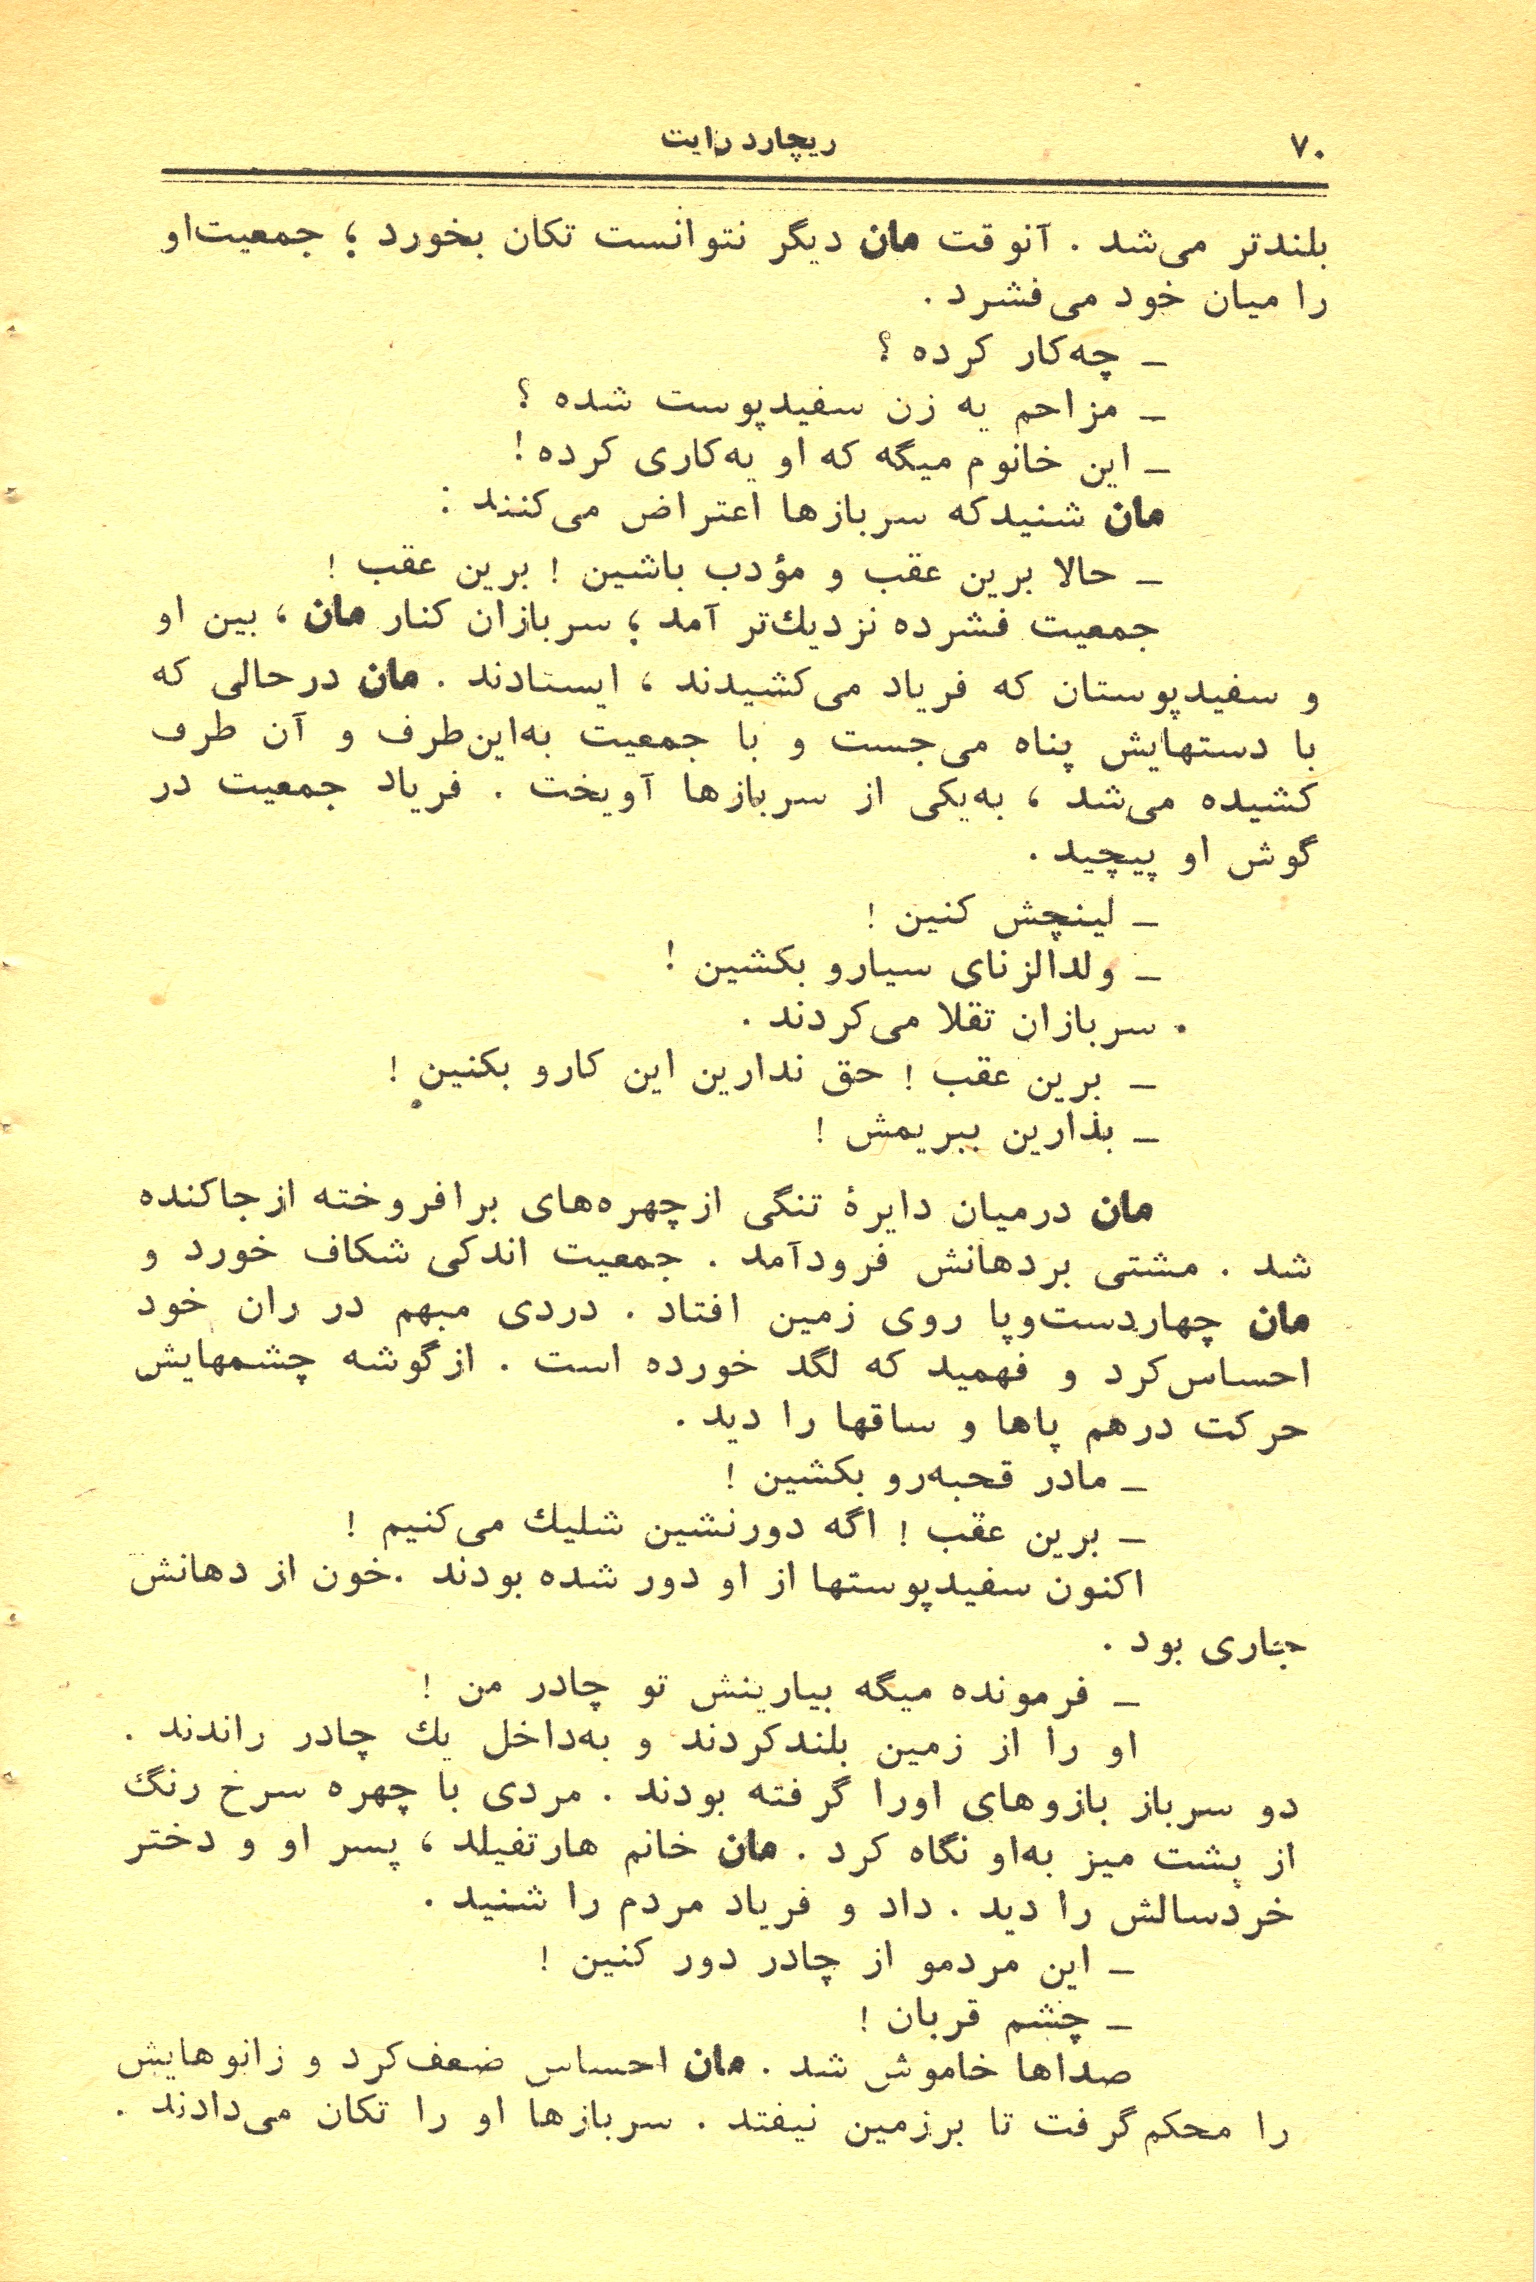 ۷۰
ریچارد رایت
بلندتر می‌شد . آنوقت مان دیگر نتوانست تکان بخورد ؛ جمعیت‌او
را میان خود می‌فشرد .
ـ چه‌کار کرده ؟
ـ مزاحم یه زن سفیدپوست شده ؟
ـ این خانوم میگه که او یه‌کاری کرده !
مان شنیدکه سربازها اعتراض می‌کنند :
ـ حالا برین عقب و مؤدب باشین ! برین عقب !
جمعیت فشرده نزدیك‌تر آمد ؛ سربازان کنار مان ، بین او
و سفیدپوستان که فریاد می‌کشیدند ، ایستادند . مان درحالی که
با دستهایش پناه می‌جست و با جمعیت به‌این‌طرف و آن طرف
کشیده می‌شد ، به‌یکی از سربازها آویخت . فریاد جمعیت در
گوش او پیچید .
ـ لینچش کنین !
ـ ولدالزنای سیارو بکشین !
سربازان تقلا می‌کردند .
ـ برین عقب ! حق ندارین این کارو بکنین !
ـ بذارین ببریمش !
مان درمیان دایرۀ تنگی ازچهره‌های برافروخته ازجاکنده
شد . مشتی بردهانش فرودآمد . جمعیت اندکی شکاف خورد و
مان چهاردست‌وپا روی زمین افتاد . دردی مبهم در ران خود
احساس‌کرد و فهمید که لگد خورده است . ازگوشه چشمهایش
حرکت درهم پاها و ساقها را دید .
ـ مادر قحبه‌رو بکشین !
ـ برین عقب ! اگه دورنشین شلیك می‌کنیم !
اکنون سفیدپوستها از او دور شده بودند .خون از دهانش
جاری بود .
ـ فرمونده میگه بیارینش تو چادر من !
او را از زمین بلندکردند و به‌داخل یك چادر راندند .
دو سرباز بازوهای اورا گرفته بودند . مردی با چهره سرخ رنگ
از پشت میز به‌او نگاه کرد . مان خانم هارتفیلد ، پسر او و دختر
خردسالش را دید . داد و فریاد مردم را شنید .
ـ این مردمو از چادر دور کنین !
ـ چشم قربان !
صداها خاموش شد . مان احساس ضعف‌کرد و زانوهایش
را محکم‌گرفت تا برزمین نیفتد . سربازها او را تکان می‌دادند .